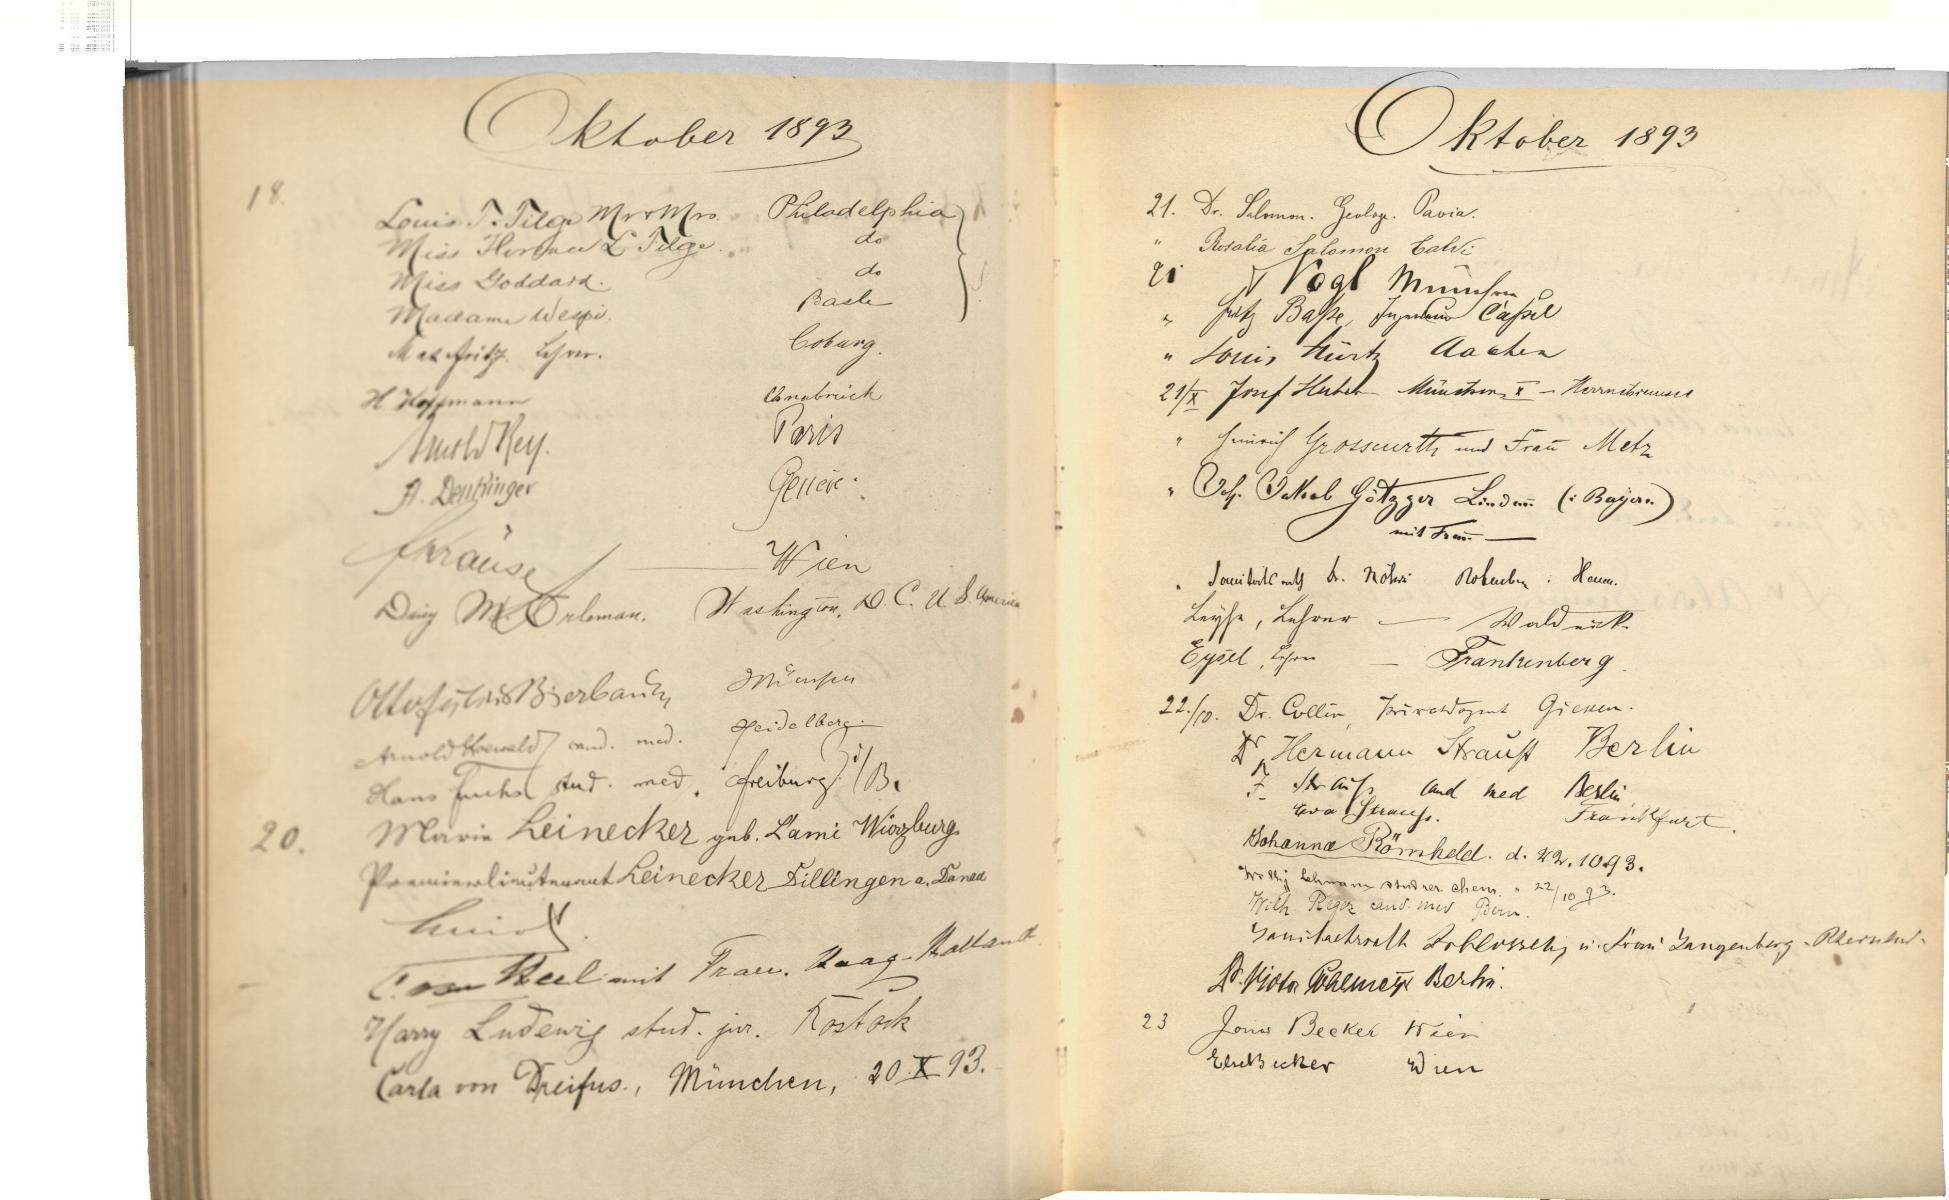 Oktober 1893
18.
Louis T. Tilge Mr & Mrs. Philadelphia
Miss L Tilge. do
Miss Goddard. do
Madame Wespi. Basle
Max Fritz. Lehrer. Coburg.
H Hoffmann Osnabrück
Arnold Rey. Paris
A. Denzinger Genève.
Krause Wien
M. Orleman. Washington, D. C. U S America
Otto Julius Bierbaum München
Arnold cand. med. Heidelberg.
Hans Fuchs stud. med. Freiburg i/B.
20. Marie Leinecker geb. Lami Würzburg
Premierlieutenant Leinecker Dillingen a. Donau
C. van mit Frau. Haag-Holland
Harry Ludewig stud. jur. Rostock
Carla von Dreifus., München, 20.X 93.
Oktober 1893
21. Dr. Salomon. Geologe. Pavia.
" Rosalia Salomon Calvi
21 Vogl München
" Fritz Baße, Ingenieur Caßel
" Louis Kürtz Aachen
21/X Josef Huber München X –
" Heinrich Grosscurth und Frau Metz
" Joh. Jakob Götzger Lindau (i Bayern)
mit Frau
" Sanitätsrath Dr.
Leyhe, Lehrer — Waldeck.
Eysel, Lehrer — Frankenberg.
22./10. Dr. Collin, Giessen.
Dr. Hermann Strauß Berlin
F. Strauß, cand med Berlin
Eva Strauss. Frankfurt.
Johanna Römheld. d. 22.10.93.
Lehmann stud. rer. chem. " 22/10 93.
Wilh. cand. med Bern.
Sanitaetsrath u. Frau Langenberg - Rheinland.
Dr. Victor Pohlmeyer Berlin.
23 Jonas Becker Wien
Else Becker Wien